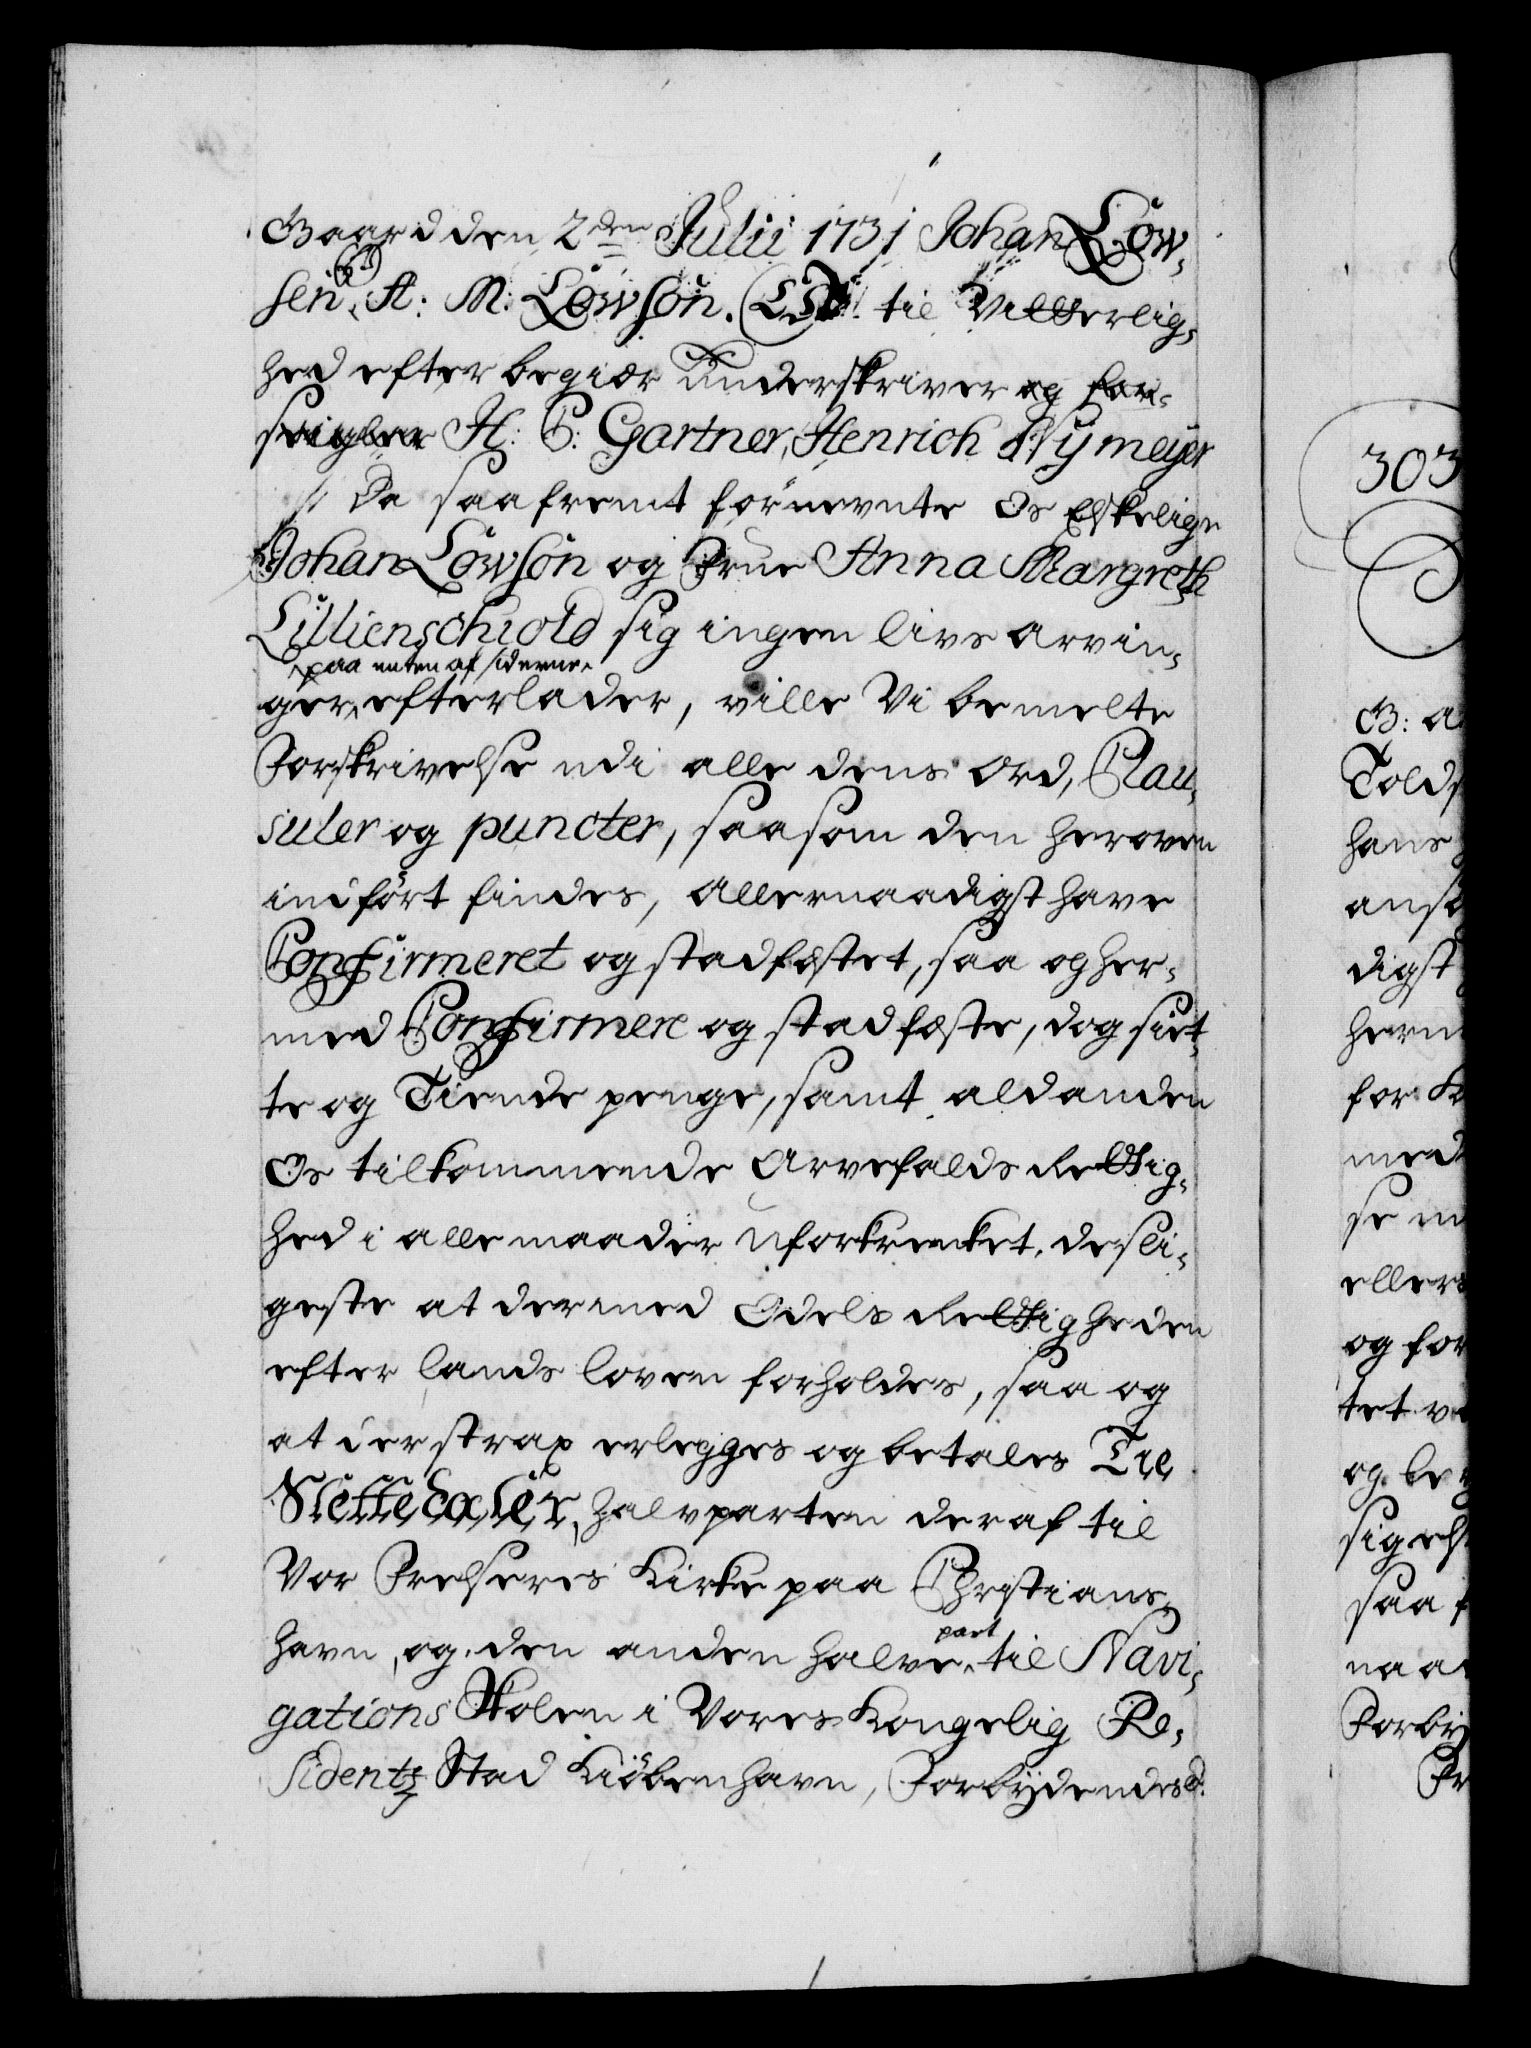 Gaard den 2den Julii 1731 Johan Löw-
sen, A: M: Löwson. til Vitterlig-
hed efter begiær Underskriver og for-
seigler H: C: Gartner, Henrich Nÿmeÿer
Da saafremt fornevnte Os Elskelige
Johan Löwson og Frue Anna Margreth
Lillienschiold sig ingen livs arvin-
paa enten af siderne
ger efterlader, ville Vi bemelte
Forskrivelse udi alle dens Ord, Clau-
suler og puncter, saasom den heroven
indført findes, allernaadigst have
Confirmeret og stadfæstet, saa og her-
med Confirmere og stadfæste, dog siet-
te og Tiende penge, samt ald anden
Os tilkommende Arvefalds Rettig-
hed i alle maader uforkrenket, desli-
geste at dermed Odels Rettigheden
efter lands loven forholdes, saa og
at der strax erlegges og betales Tie
Slettedaler, halvparten deraf til
Vor Frelseres Kirke paa Christians-
part
havn, og den anden halve til Navi-
gations Skolen i Vores Kongelig Re-
sidentz Stad Kiöbenhavn, Forbydendes

303
G: a
Told
hans
ansö
digst
herm
for
med
se
eller
og for
tet
og be
sig
saa
naa
Forby
Fr